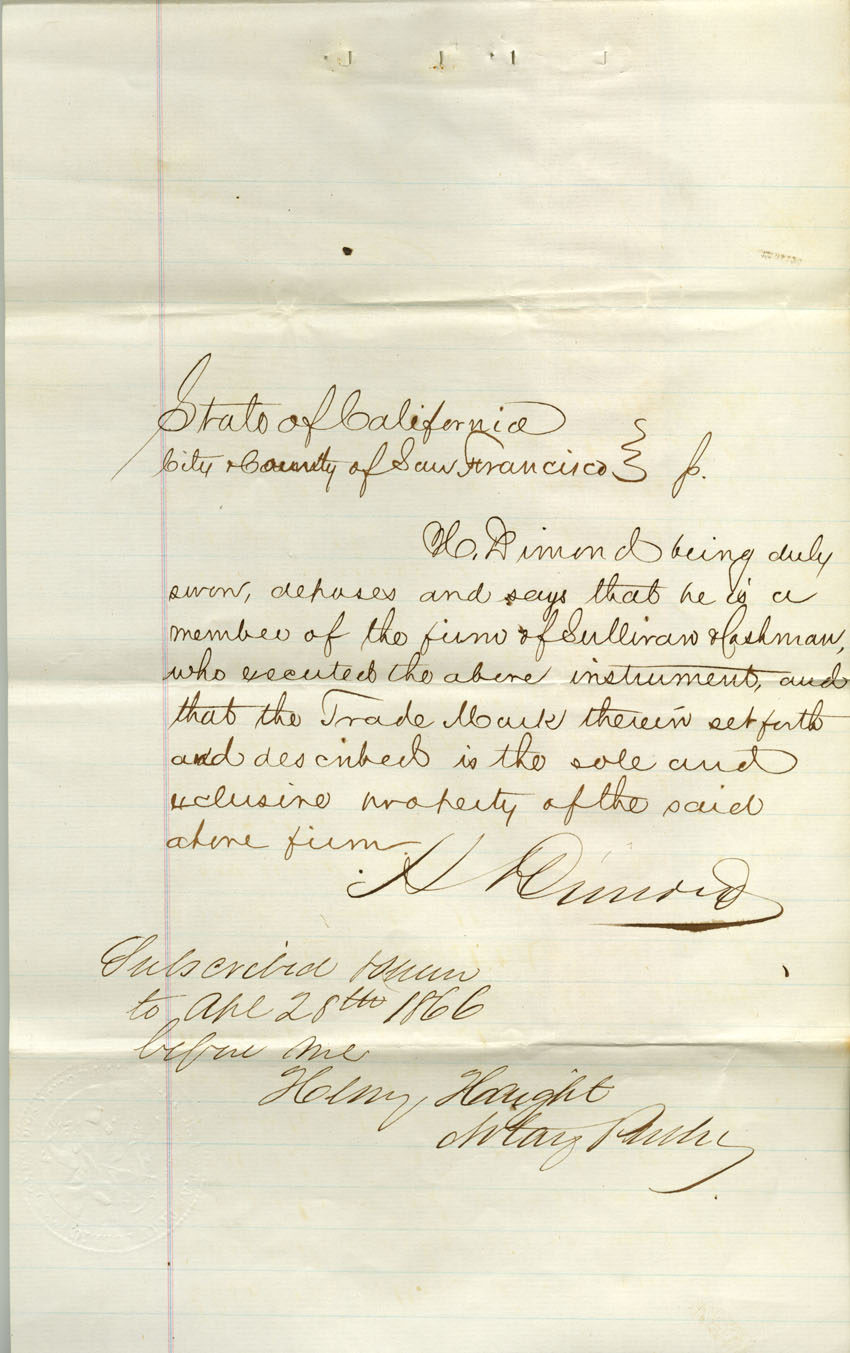 State of California
City & County of San Francisco } ss.
H. Dimond being duly
sworn, deposes and says that he is a
member of the firm of Sullivan & Cashman,
who executed the above instrument, and
that the Trade Mark therein set forth
and described is the sole and
exclusive property of the said
above firm.
H Dimond
Subscribed & sworn
to Apl 28th 1866
before me
Henry Haight
Notary Public